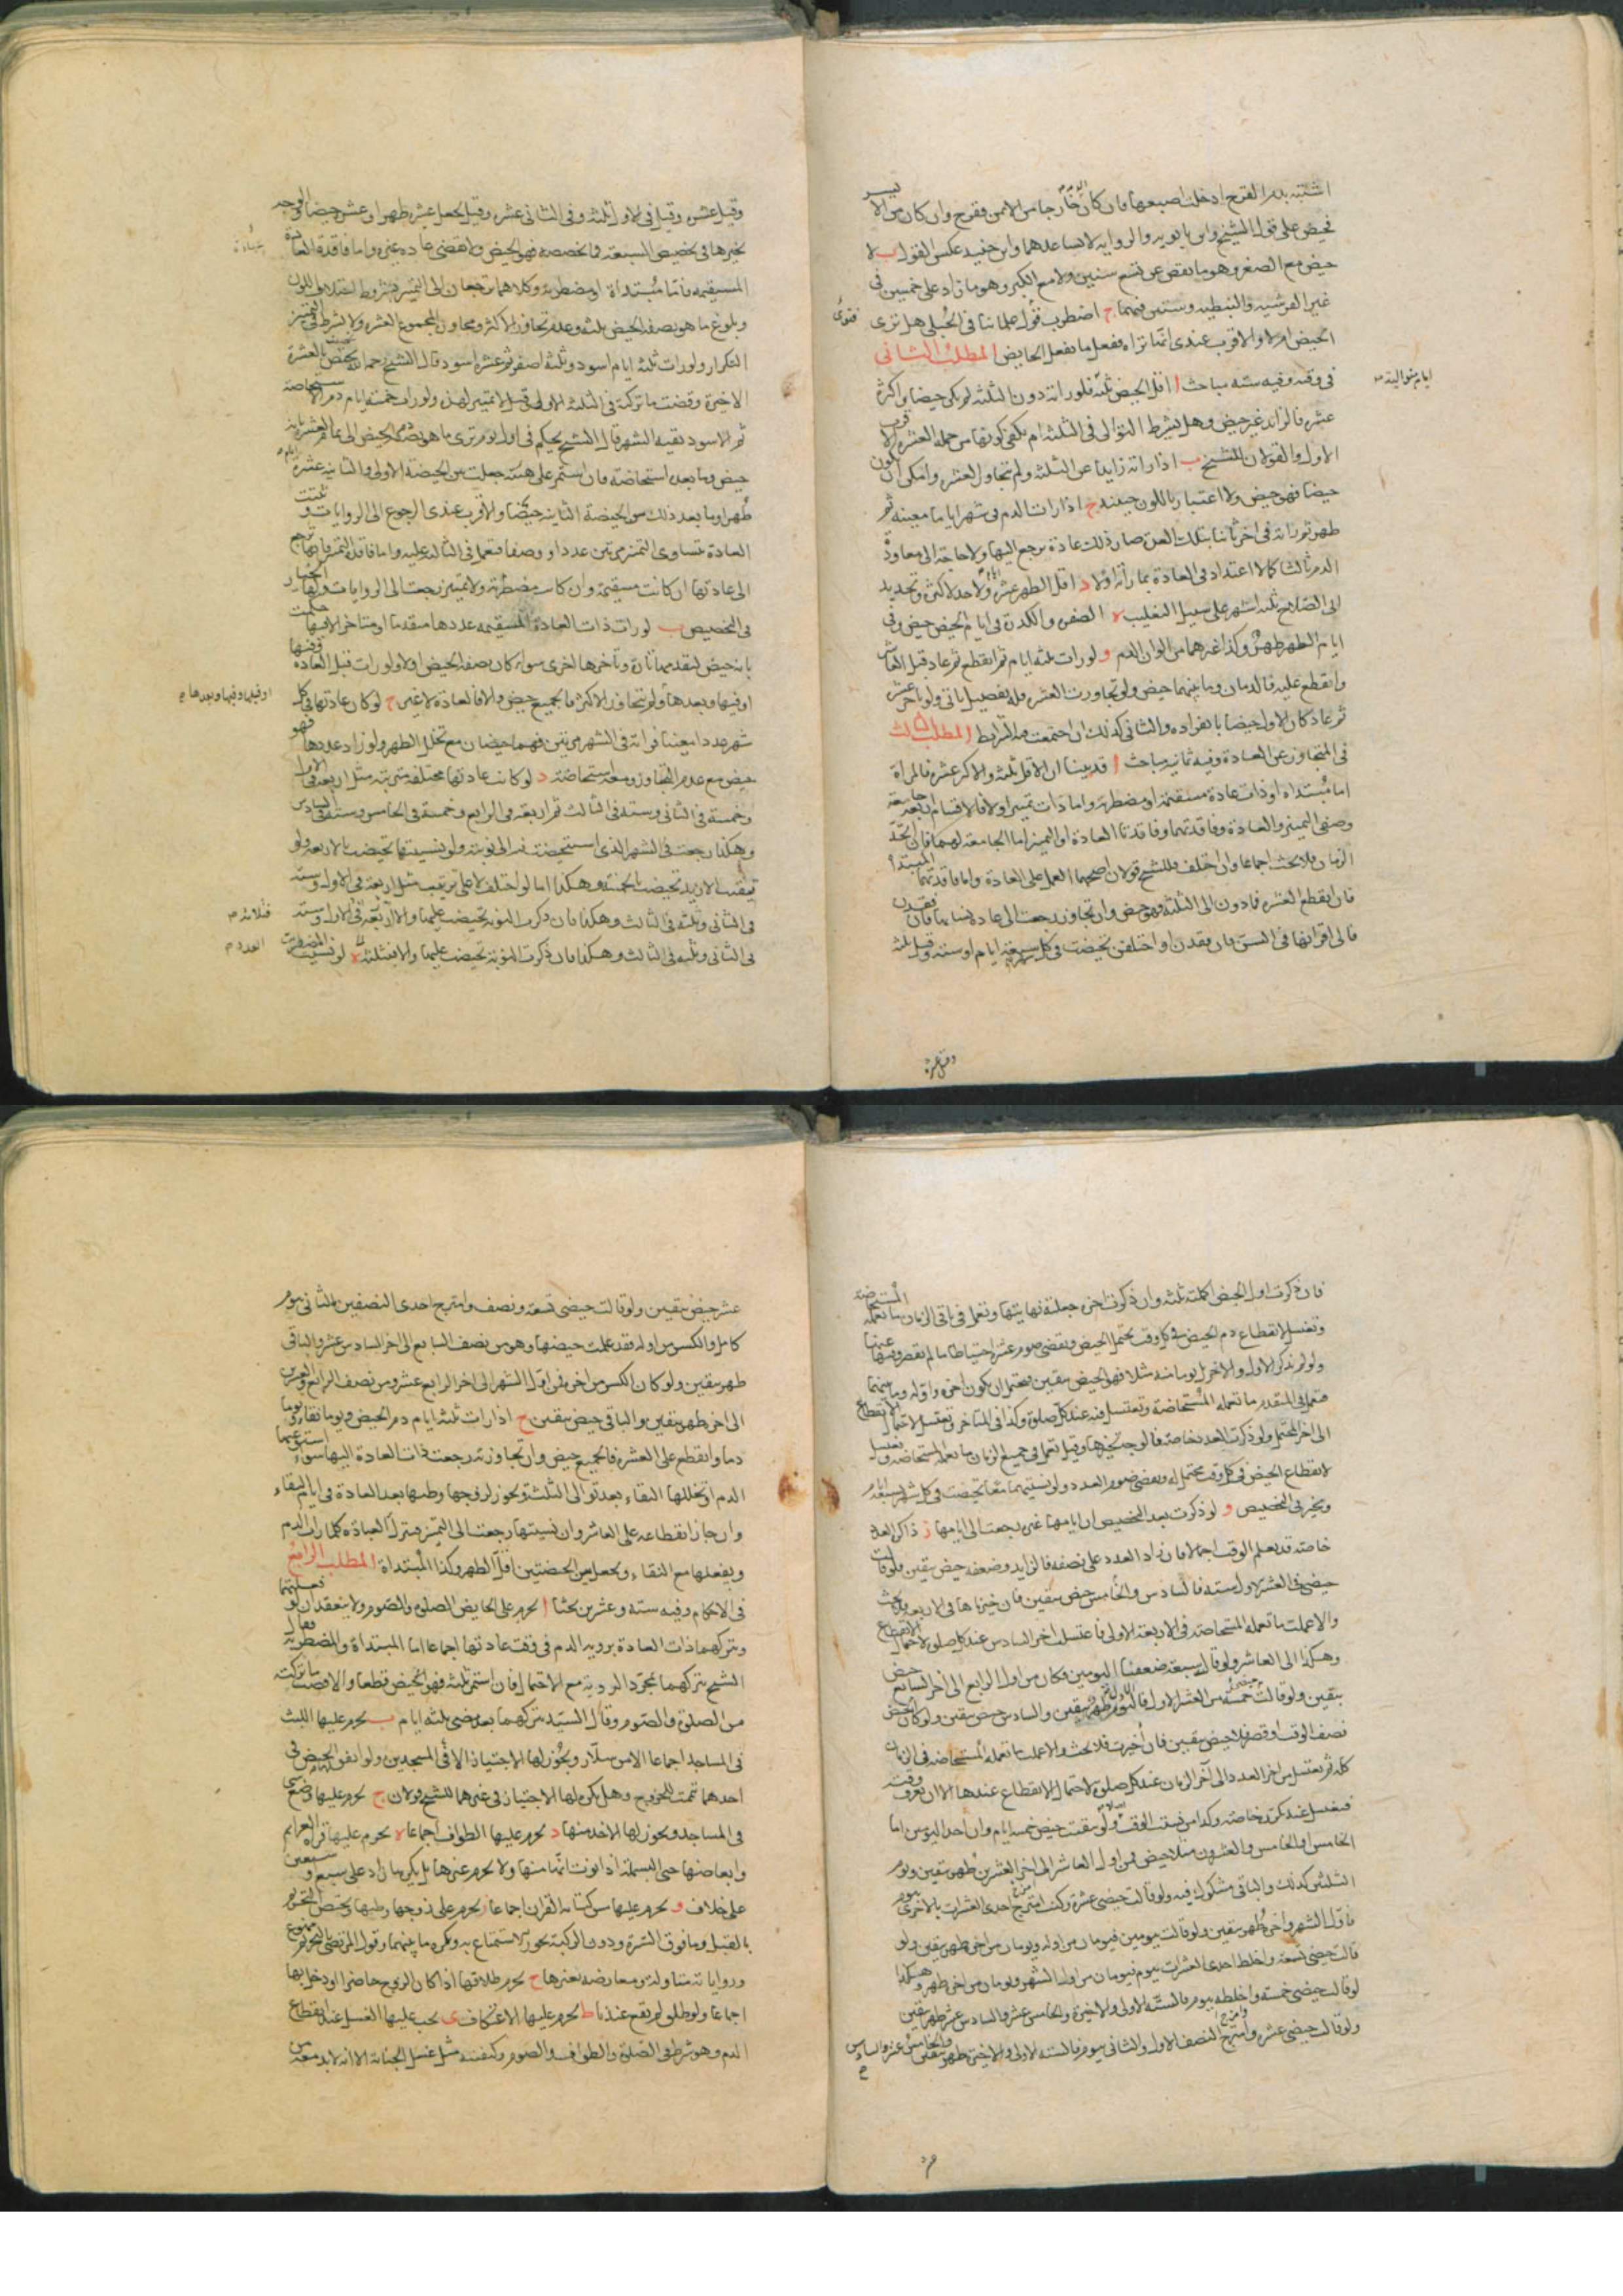 اشتبه بدم القرح ادخلت اصبعها فان كان خارجا من الايمن فقرح وان كان من الايسر
فحيض على قول الشيخ وابن بابويه والرواية لا تساعدهما وابن جنيد عكس القول ب لا
حيض مع الصغر وهو ما نقص عن تسع سنين ولا مع الكبر وهو ما زاد على خمسين في
غير القرشيه والنبطيه وستين فيهما ج اضطرب قول علمائنا في الحبلى هل ترى
الحيض ام لا والاقرب عندى انها تراه وتفعل ما تفعل الحايض المطلب الثانى
فى وقته وفيه سته مباحث ا اقل الحيض ثلثه فلو راته دون الثلثه لم يكن حيضا واكثره
عشره فالزايد غير حيض وهل يشترط التوالى فى الثلثه ام يكفى كونها من جمله العشره الاقرب
الاول والقولان للشيخ ب اذا راته زايدا عن الثلثه ولم تتجاوز العشره وامكن ان يكون
حيضا فهو حيض ولا اعتبار باللون حينئذ ج اذا رات الدم فى شهر اياما معينه ثم
طهرت ثم راته فى اخر ثانيا بتلك العدة صار ذلك عادة ترجع اليها ولا حاجة الى معاودة
الدم ثالثا كما لا اعتداد فى العادة بما راته اولا د اقل الطهر عشره ايام ولا حد لاكثره وتحديد
ابى الصلاح بثلثه اشهر على سبيل التغليب ه الصفره والكدرة فى ايام الحيض حيض وفى
ايام الطهر طهر وكذا غيرهما من الوان الدم و لو رات ثلثه ايام ثم انقطع ثم عاد قبل العاشر
وانقطع عليه فالدمان وما بينهما حيض ولو تجاوزت العشره فله تفصيل ياتى ولو تاخر عشره
ثم عاد كان الاول حيضا بانفراده والثانى كذلك ان اجتمعت فيه الشرايط المطلب الثالث
فى المتجاوز عن العادة وفيه ثمانيه مباحث ا قد بينا ان الاقل ثلثه والاكثر عشره فالمراة
اما مبتداه او ذات عادة مستقيمة او مضطربة واما ذات تمييز او لا فالاقسام اربعه جامعه
وصفى التمييز والعادة وفاقدتهما وفاقدتا العادة او التمييز اما الجامعة لهما فان اتحد
الزمان فلا بحث اجماعا وان اختلف فللشيخ قولان اصحهما العمل على العادة واما فاقدتهما المبتداه
فان انقطع لعشره فما دون الى الثلثه فهو حيض وان تجاوز رجعت الى عادة نسائها فان فقدن
فالى اقرانها فى السن فان فقدن او اختلفن تحيضت فى كل شهر سبعه ايام او سته وقيل ثلثه
فتوى
ايام متواليه
وقيل عشره
وقيل عشره وقيل فى الاول ثلثه وفى الثانى عشره وقيل تجعل عشره طهرا وعشره حيضا والوجه
تخيرها فى تخصيص السبعة فما تخصصه فهو الحيض ولا تقضى عادة غيره واما فاقدة العادة
المستقيمه فانها مبتداة او مضطربه وكلاهما ترجعان الى التمييز بشروط اختلاف اللون
وبلوغ ما هو بصفه الحيض ثلثه وعدم تجاوز الاكثر ومجاوزة المجموع العشره ولا يشترط فى التمييز
التكرار ولو رات ثلثه ايام اسود وثلثه اصفر ثم عشره اسود قال الشيخ رحمه الله تحيضت بالعشرة
الاخيرة وقضت ما تركته فى الثلثه الاولى وقيل لا تمييز لهذه ولو رات خمسه ايام دم الاستحاضه
ثم الاسود بقيه الشهر قال الشيخ يحكم فى اول يوم ترى ما هو بصفه الحيض الى تمام العشره بانه
حيض وما بعده استحاضة فان استمر على هيئته جعلت بين الحيضة الاولى والثانيه عشره ايام
طهرا وما بعد ذلك من الحيضة الثانيه حيضا والاقرب عندى الرجوع الى الروايات وثبتت
العادة بتساوى التمييز مرتين عددا ووصفا فتعمل فى الثالثه عليه واما فاقدة التمييز فانها ترجع
الى عادتها ان كانت مستقيمة وان كانت مضطربه ولا تمييز رجعت الى الروايات ولها الخيار
فى التخصيص ب لو رات ذات العادة المستقيمه عددها متقدما او متاخرا لا فيها حكمت
بانه حيض لتقدمها تارة وتاخرها اخرى سواء كان بصفه الحيض او لا ولو رات قبل العادة وفيها
او فيها وبعدها ولم تتجاوز الاكثر فالجميع حيض والا فالعادة لا غير ج لو كان عادتها فى كل
شهر عددا معينا فراته فى الشهر مرتين فهما حيضان مع تخلل الطهر ولو زاد عددها فهو
حيض مع عدم التجاوز ومعه استحاضة د لو كانت عادتها مختلفه مترتبه مثل اربعه فى الاول
وخمسة فى الثانى وسته فى الثالث ثم اربعه فى الرابع وخمسة فى الخامس وسته فى السادس
وهكذا رجعت فى الشهر الذى استحيضت فيه الى نوبته ولو نسيتها تحيضت بالاربعه ولو
تيقنت الازيد تحيضت بالخمسه وهكذا اما لو اختلف لا على ترتيب مثل اربعه فى الاول وسته
فى الثانى وثلثه فى الثالث وهكذا فان ذكرت النوبه تحيضت عليها والا اربعه فى الاول وسته
فى الثانى وثلثه فى الثالث وهكذا فان ذكرت النوبة تحيضت عليها والا فبثلثه ه لو نسيت المضطربة
او قبلها وفيها وبعدها ح
فثلاثه م
العدد م
فان ذكرت اول الحيض اكملته ثلثه وان ذكرت اخره جعلته نهايتها وتعمل فى باقى الزمان ما تعمله المستحاضة
وتغتسل لانقطاع دم الحيض فى كل وقت يحتمل الحيض وتقضى صوم عشره احتياطا ما لم يقصر وقتها عنها
ولو لم تذكر الاول والاخر بل يوما منه مثلا فهو الحيض بيقين ويحتمل ان يكون اخره واوله وما بينهما
فتعمل فى المتقدم ما تعمله المستحاضة وتغتسل فيه عند كل صلوة وكذا فى المتاخر وتغتسل لاحتمال الانقطاع
الى اخر المحتمل ولو ذكرت العدد خاصة فالوجه تخيرها وقيل تعمل فى جميع الزمان ما تعمله المستحاضه وتغتسل
لانقطاع الحيض فى كل وقت محتمل له وتقضى صوم العدد ولو نسيتهما معا تحيضت فى كل شهر بسبعه ايام
وتخير فى التخصيص و لو ذكرت بعد التخصيص ان ايامها غيره رجعت الى ايامها ز ذاكرة العدد
خاصة قد يعلم الوقت اجمالا فان زاد العدد على نصفه فالزايد وضعفه حيض بيقين فلو قالت
حيضى فى العشر الاول سته فالسادس والخامس حيض بيقين فان خيرناها فى الاربعة فلا بحث
والا عملت ما تعمله المستحاضة فى الاربعة الاولى فاغتسلت اخر السادس عند كل صلوة لاحتمال الانقطاع
وهكذا الى العاشر ولو قالت سبعة ضعفنا اليومين فكان من اول الرابع الى اخر السابع حيض
بيقين ولو قالت حيضى خمسه من العشر الاول فاليوم الاول طهر بيقين والسادس حيض بيقين ولو كان الحيض
نصف الوقت او قصر فلا حيض بيقين فان خيرت فلا بحث والا عملت ما تعمله المستحاضه فى الزمان
كله ثم تغتسل من اخر العدد الى اخر الزمان عند كل صلوة لاحتمال الانقطاع عندها الا ان تعرف وقته
فتغتسل عند ذكره خاصة وكذا من نسيت الوقت ولو تيقنت حيض خمسه ايام وان احد اليومين اما
الخامس او الخامس والعشرون مثلا حيض فمن اول العاشر الى اخر العشرين طهر بيقين ويوم
الثلثين كذلك والباقى مشكوك فيه ولو قالت حيضى عشرة وكنت امزج احدى العشرات بالاخرى بيوم
فاول الشهر واخره طهر بيقين ولو قالت بيومين فيومان من اوله ويومان من اخره طهر بيقين ولو
قالت حيضى تسعة واخلط احدى العشرات بيوم فيومان من اول الشهر ويومان من اخره طهر وهكذا
لو قالت حيضى خمسه واخلطه بيوم فالستة الاولى والاخيرة والخامس عشر والسادس عشر طهر بيقين
ولو قالت حيضى عشره وامتزج النصف الاول والثانى بيوم فالسته الاولى والاخيره طهر بيقين والخامس عشر والسادس
عشر حيض بيقين ولو قالت حيضى تسعة ونصف وامتزج احدى النصفين بالثانى بيوم
كامل والكسر من اوله فقد علمت حيضها وهو من نصف السابع الى اخر السادس عشر والباقى
طهر بيقين ولو كان الكسر من اخره فمن اول الشهر الى اخر الرابع عشر ومن نصف الرابع والعشرين
الى اخره طهر بيقين والباقى حيض بيقين ح اذا رات ثلثه ايام دم الحيض ويوما نقاء ويوما
دما وانقطع على العشره فالجميع حيض وان تجاوزته رجعت ذات العادة اليها سواء استوعبها
الدم او تخللها النقاء بعد توالى الثلثه ويجوز لزوجها وطيها بعد العادة فى ايام النقاء
وان جاز انقطاعه على العاشر وان نسيتها رجعت الى التمييز فتترك العبادة كلما رات الدم
وتفعلها مع النقاء وتجعل بين الحيضتين اقل الطهر وكذا المبتداة المطلب الرابع
فى الاحكام وفيه سته وعشرين بحثا ا تحرم على الحايض الصلوة والصوم ولا ينعقدان لو فعلتهما
وتتركهما ذات العادة برويه الدم فى وقت عادتها اجماعا اما المبتداة والمضطربة فقال
الشيخ تتركهما بمجرد الروية مع الاحتمال فان استمر ثلثه فهو الحيض قطعا والا قضت ما تركته
من الصلوة والصوم وقال السيد تتركهما بعد مضى ثلثه ايام ب يحرم عليها اللبث
فى المساجد اجماعا الا من سلار ويجوز لها الاجتياز الا فى المسجدين ولو اتفق الحيض فى
احدهما تيممت للخروج وهل يكره لها الاجتياز فى غيرهما للشيخ قولان ج يحرم عليها وضع شى
فى المساجد ويجوز لها الاخذ منها د يحرم عليها الطواف اجماعا ه يحرم عليها قراة العزائم
وابعاضها حتى البسملة اذا نوت انها منها ولا يحرم غيرها بل يكره ما زاد على سبع او سبعين
على خلاف و يحرم عليها مس كتابه القران اجماعا ز يحرم على زوجها وطيها ويختص التحريم
بالقبل وما فوق السرة ودون الركبة يجوز الاستمتاع به ويكره ما بينهما وقول المرتضى بالتحريم ممنوع
ورواياته متناوله ومعارضه بغيرها ح يحرم طلاقها اذا كان الزوج حاضرا او دخل بها
اجماعا ولو طلق لم يقع عندنا ط يحرم عليها الاعتكاف ى يجب عليها الغسل عند انقطاع
الدم وهو شرط فى الصلوة والطواف والصوم وكيفيته مثل غسل الجنابة الا انه لا بد معه من